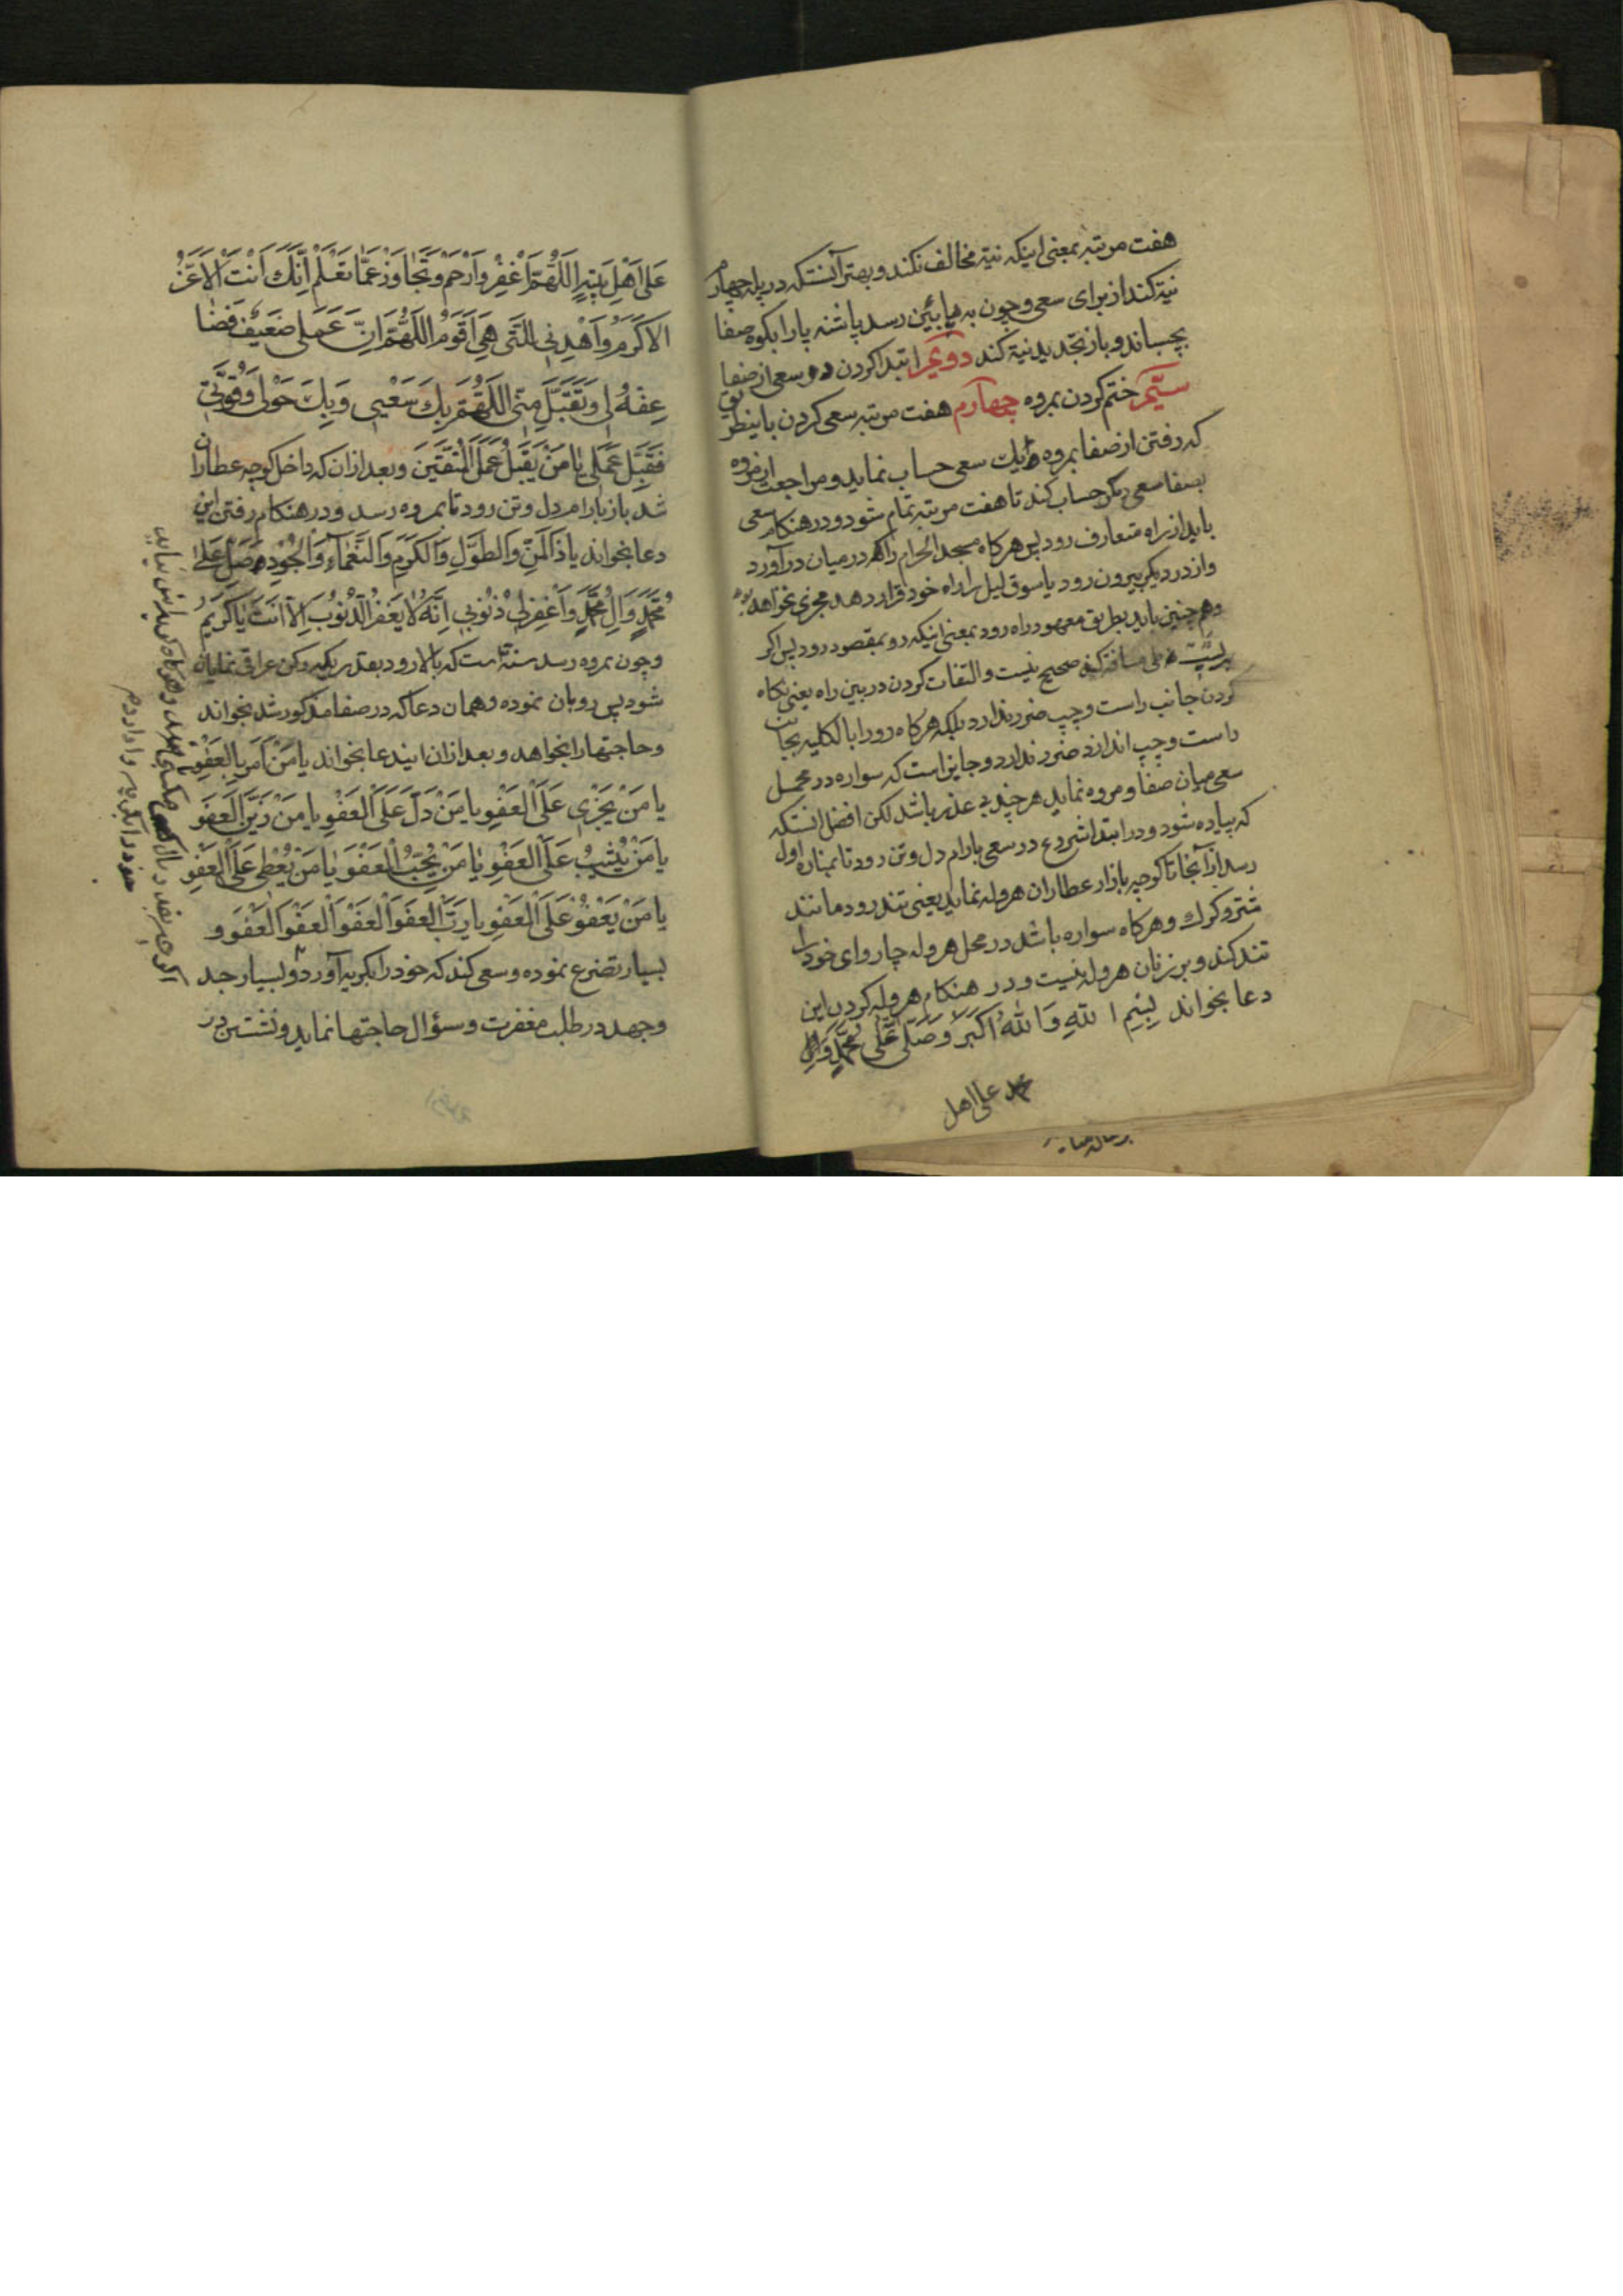 هفت مرتبه بمعنی اینکه نیة مخالف نکند و بهتر آنستکه در پله چهارم
نیة کند از برای سعی و چون به پایین رسد پاشنه پا را بکوه صفا
بچسباند و باز تجدید نیة کند دویم ابتدا کردن در سعی از صفا
سیم ختم کردن بمروه چهارم هفت مرتبه سعی کردن باینطریق
که رفتن از صفا بمروه یک سعی حساب نماید و مراجعت از مروه
بصفا سعی دیگر حساب کند تا هفت مرتبه تمام شود و در هنکام سعی
باید از راه متعارف رود پس هرکاه مسجد الحرام را در میان در آورد
و از در دیکر بیرون رود یا سوق لیل را راه خود قرار دهد مجزی نخواهد بود
و همچنین باید بطریق معهود راه رود بمعنی اینکه رو بمقصود رود پس اکر
صحیح نیست و التفات کردن در بین راه یعنی نکاه
کردن جانب راست و چپ ضرر ندارد بلکه هرکاه رو را بالکلیه بجانب
راست و چپ اندازد ضرر ندارد و جایز است که سواره در محمل
سعی میان صفا و مروه نماید هر چند بی عذر باشد لکن افضل انستکه
که پیاده شود و در ابتدا شروع در سعی بارام دل و تن رود تا بمناره اول
رسد از آنجا تا کوچه بازار عطاران هروله نماید یعنی تند رود مانند
شتر و کرک و هرکاه سواره باشد در محل هروله چاروای خود را
تند کند و بر زنان هروله نیست و در هنکام هروله کردن این
دعا بخواند بِسْمِ اللهِ وَاللهُ اَکْبَرُ وَصَلَّی عَلی مُحَمَّدٍ وَالِ
محمد علی اهل
عَلی اَهْلِ بَیْتِهِ اَللّهُمَّ اَغْفِرْ وَاَرْحَمْ وَتَجاوَزْ عَمّا تَعْلَمْ اِنَّکَ اَنْتَ الاَعَزُّ
الاَکْرَمُ وَاَهْدِنی الَّتی هِیَ اَقْوَمُ اَللّهُمَّ اِنَّ عَمَلی ضَعیفٌ فَضا
عِفهُ لی وَتَقَبَّلْ مِنّی اَللّهُمَّ بِکَ سَعْیی وَبِکَ حَوْلی وَقُوَّتی
فَقَبِّل عَمَلی یا مَنْ یَقْبَلُ عَمَلَ الْمُتَّقینَ و بعد از ان که داخل کوچه عطاران
شد باز بارام دل و تن رود تا بمروه رسد و در هنکام رفتن این
دعا بخواند یا ذَا الْمَنِّ وَالطَّوْلِ وَالْکَرَمِ وَالنَّعْماءِ وَالْجُودِ صَلِّ عَلی
مُحَمَّدٍ وَالِ مُحَمَّدٍ وَاَغْفِرْلی ذُنُوبی اِنَّهُ لا یَغْفِرُ الذُّنُوبَ اِلاّ اَنْتَ یا کَریمُ
و چون بمروه رسد سنة است که بالا رود بقدریکه رکن عراقی نمایان
شود پس رو بان نموده و همان دعا که در صفا مذکور شد بخواند
و حاجتها را بخواهد و بعد از ان ایندعا بخواند یا مَنْ اَمَرَ بِالْعَفْوِ
یا مَنْ یَجْزی عَلَی الْعَفْوِ یا مَنْ دَلَّ عَلَی الْعَفْوِ یا مَنْ زَیَّنَ الْعَفْوَ
یا مَنْ یُثیبُ عَلَی الْعَفْوِ یا مَنْ یُحِبُّ الْعَفْوَ یا مَنْ یُعْطی عَلَی الْعَفْوِ
یا مَنْ یَعْفُوْ عَلَی الْعَفْوِ یا رَبَّ الْعَفْوِ اَلْعَفْوَ اَلْعَفْوَ اَلْعَفْوَ و
بسیار تضرع نموده و سعی کند که خود را بکریه آورد و بسیار جد
و جهد در طلب مغفرت و سؤال حاجتها نماید و نشستن در